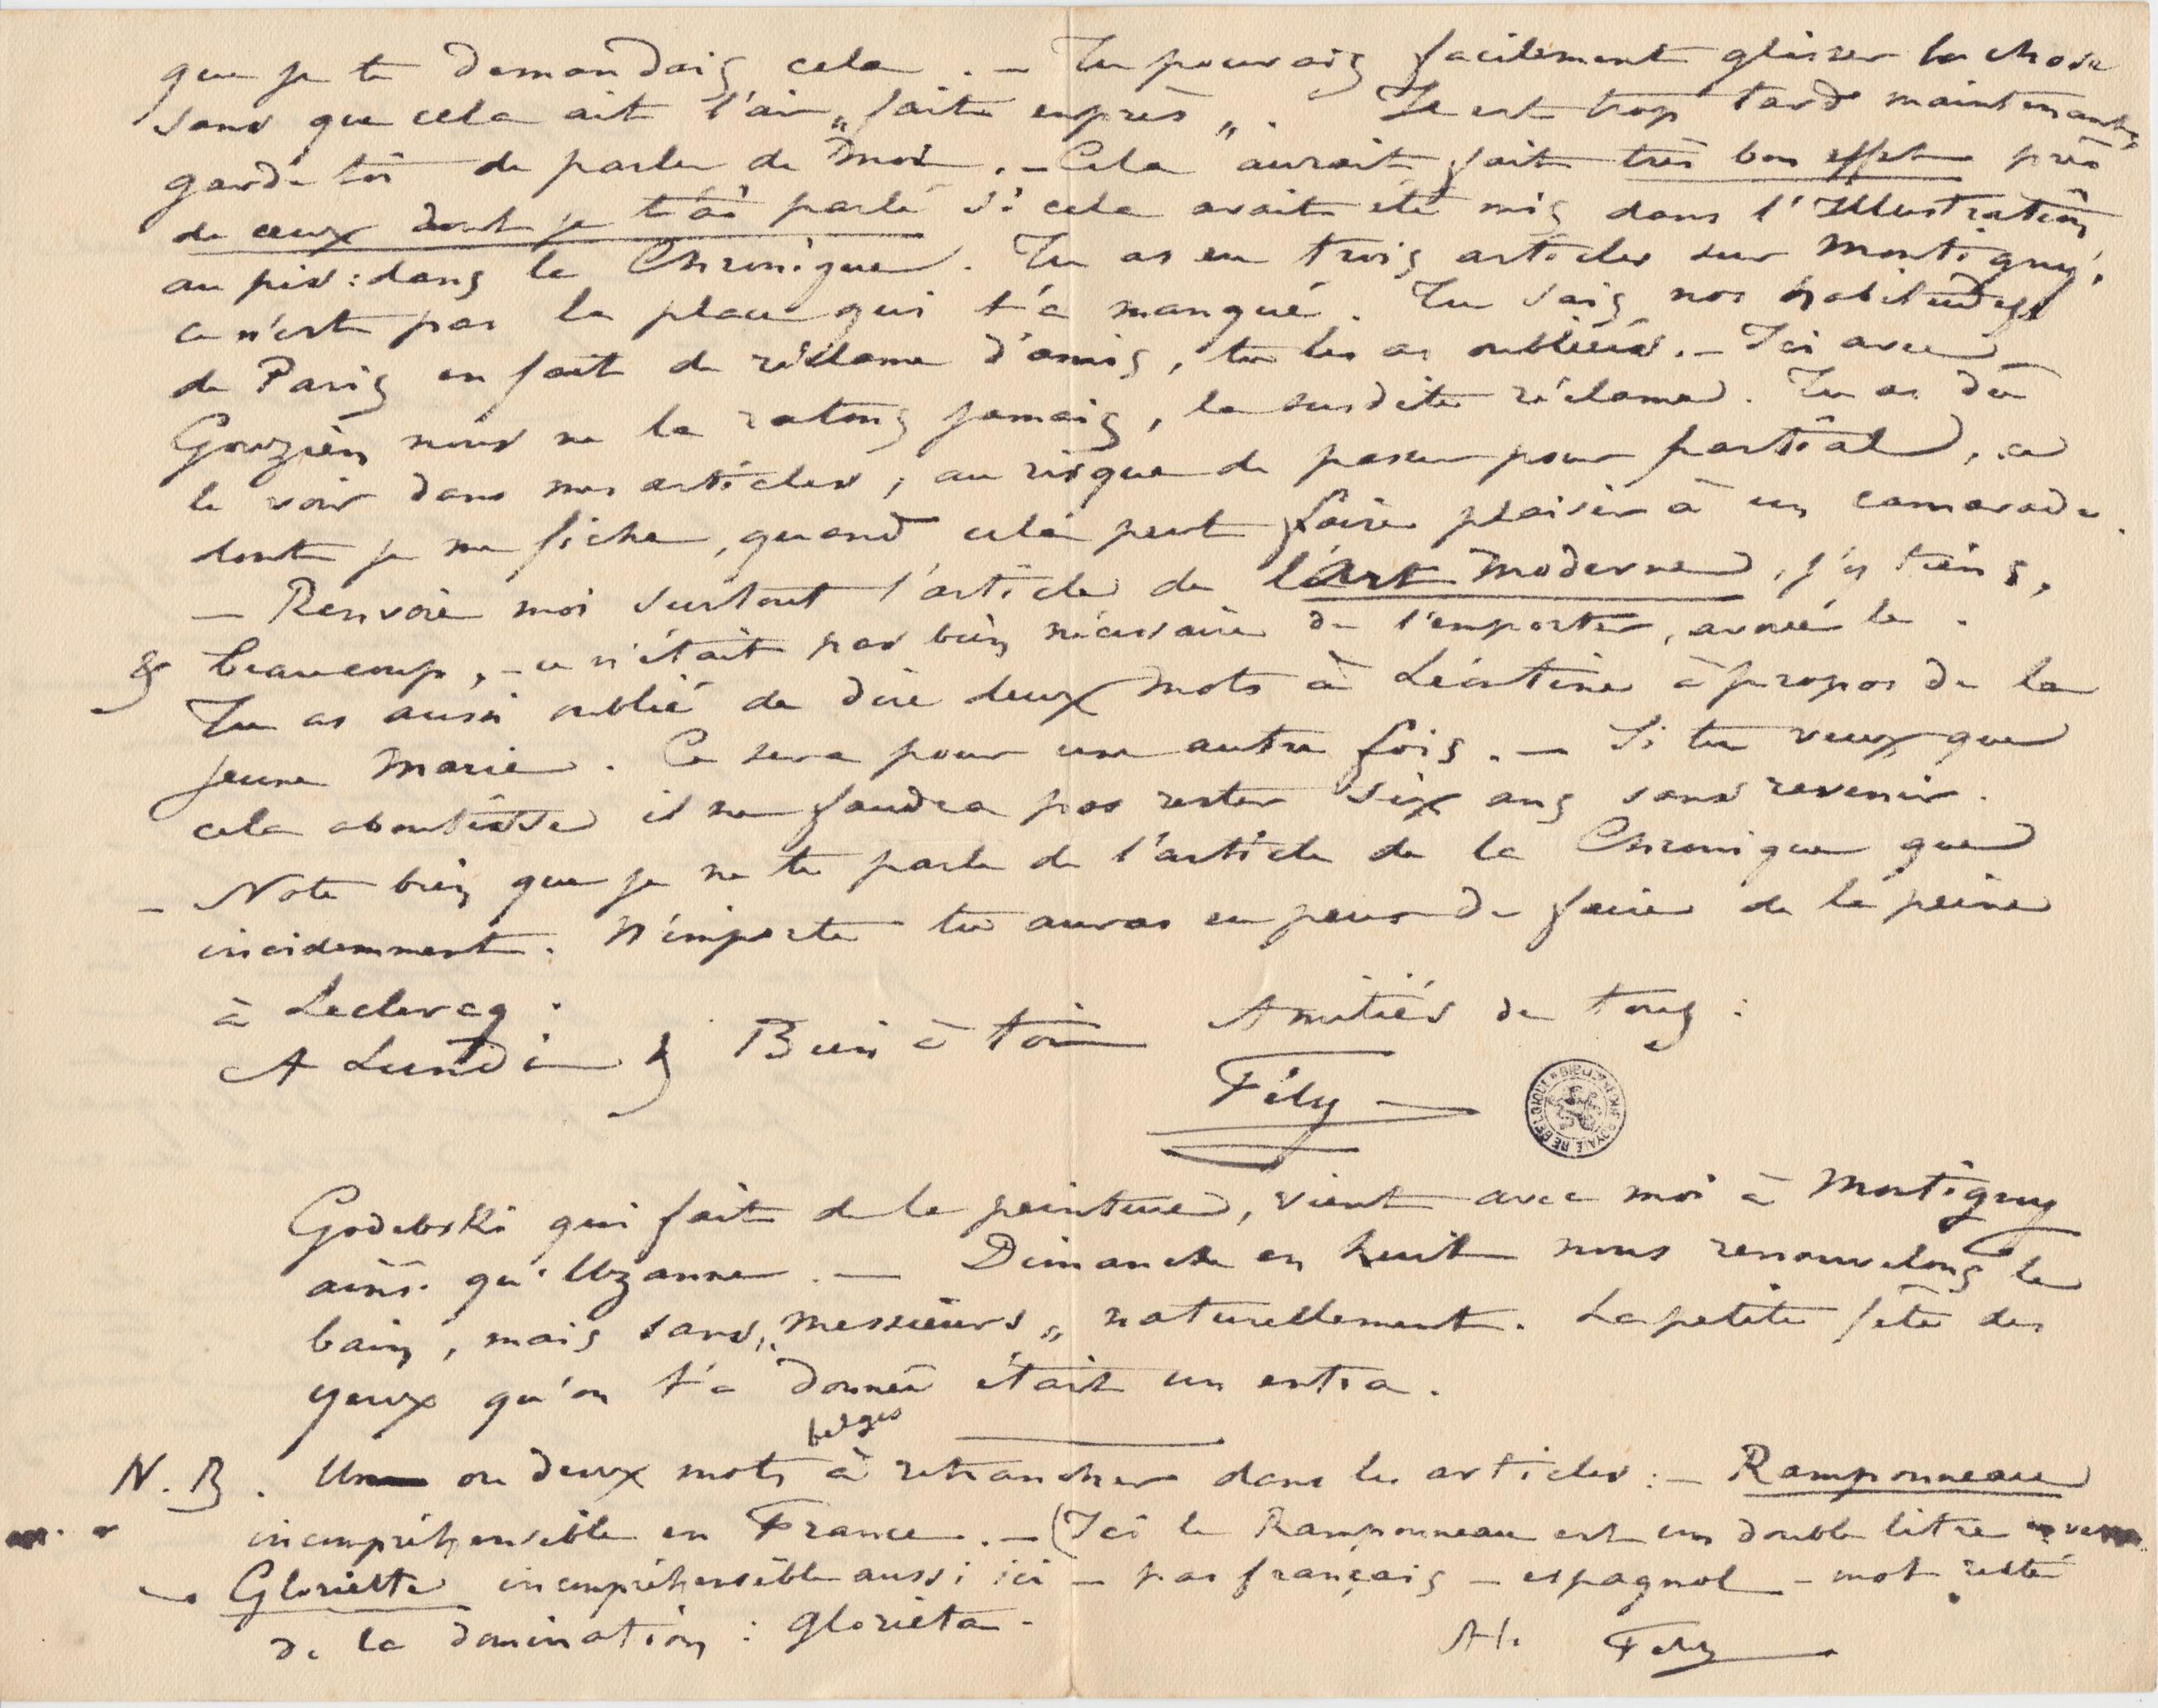 que je te demandais cela . – Tu pouvais facilement glisser la chose
sans que cela ait l'air „ faite exprès „ . Il est trop tard maintenant,
garde toi de parler de moi . – Cela aurait fait très bon effet près
de ceux dont je t'ai parlé si cela avait été mis dans l'Illustration,
au pis : dans la Chronique . Tu as eu trois articles sur Montigny,
ce n'est pas la place qui t'a manqué . Tu sais nos habitudes
de Paris en fait de réclame d'amis, tu les as oubliées . – Ici avec
Gouzien nous ne la ratons jamais, la susdite réclame . Tu as dû
le voir dans mes articles, au risque de passer pour partial, ce
dont je me fiche, quand cela peut faire plaisir à un camarade .
– Renvoie moi surtout l'article de l'Art Moderne, j'y tiens,
& beaucoup, – ce n'était pas bien nécessaire de l'emporter, avoue le .
Tu as aussi oublié de dire deux mots à Léontine à propos de la
jeune Marie . Ce sera pour une autre fois . – Si tu veux que
cela aboutisse il ne faudra pas rester six ans sans revenir .
– Note bien que je ne te parle de l'article de la Chronique que
incidemment . N'importe tu auras eu peur de faire de la peine
à Leclercq .
A Lundi & Bien à toi Amitiés de tous :
Fély
BIBLIOTHÈQUE ROYALE DE BELGIQUE
Godebski qui fait de la peinture, vient avec moi à Montigny
ainsi qu'Uzanne . – Dimanche en huit nous renouvelons le
bain, mais sans „ messieurs „ naturellement . La petite fête des
yeux qu'on t'a donnée était un extra .
belges
N. B . Un ou deux mots à retrancher dans les articles : – Ramponneau
incompréhensible en France . – (Ici le Ramponneau est un double litre
Gloriette incompréhensible aussi ici – pas français – espagnol – mot resté
de la domination : glorieta –
At. Fély